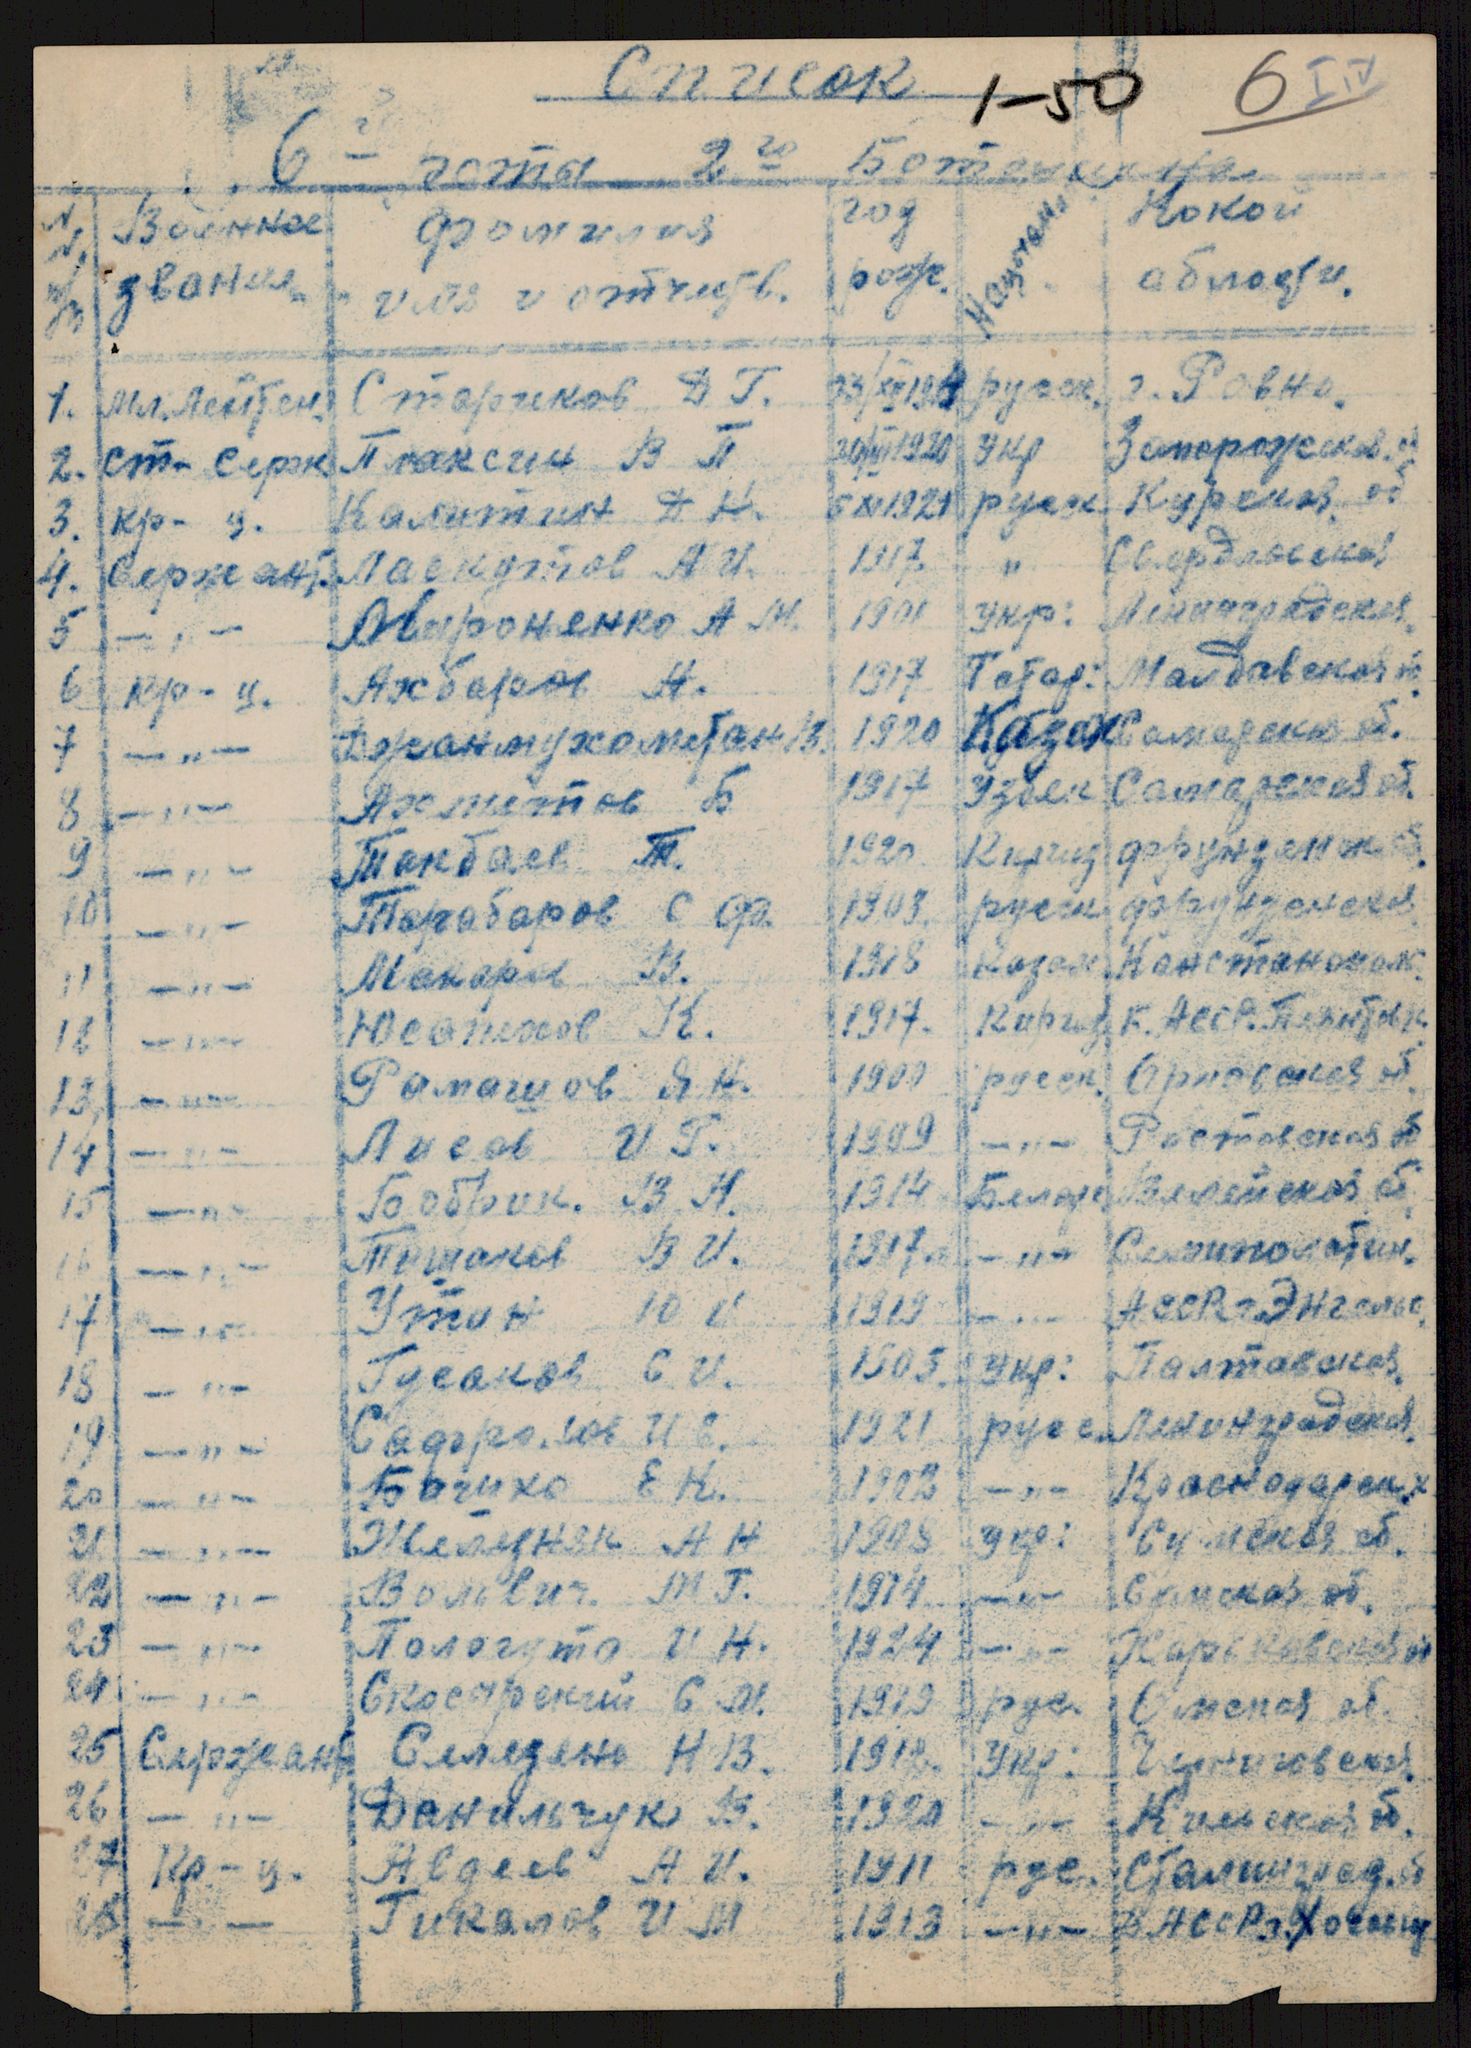 Список 1-50 6 IV
6й роты 2гоБотольона
N N п/п Военное звания Фомилия имя и отчеств. год рожд. Нацыонал. Какой облости.
1. Мл. Лейтен. Стариков Д Г. 23/XII 1914 русск. г. Ровно.
2. ст- Серж Плаксин В П 20/VI 1920 Укр Запорожсков. об
3. кр- ц. Калитин Д Н. 6 XI 1921 русск Курской об
4. Сержант. Ласкутов А И. 1917 " Свердловской
5 - " - Мироненко А М. 1901 укр: Ленинградская.
6 кр- ц. Ахбаров А. 1917 Татар: Малдавской об.
7 - " - Джанмухометан В. 1920 Казах Самарской об.
8 - " - Ахметов Б 1917 Узбек Самарской об.
9 - " - Токбаев Т. 1920 Киргиз Фрунзенск об.
10 - " - Тарабаров С Ф. 1903. русск Фрунзенской
11 - " - Макаров В. 1918 Козах. Констанополк.
12 - " - Юсопихов К. 1917. Киргиз К. АССР.
13, - " - Рамашов Я Н. 1900 русск. Орловской об.
14 - " - Лисов И Г. 1909 - " - Ростовской об
15 - " - Бобрик. В Н. 1914 Белор. Вилейской об
16 - " - Тишаков В И. 1917. - " - Семиполотин.
17 - " - Утан Ю И 1919 - " - АССР г. Энгельс.
18 - " - Гусаков С И. 1905. Укр: Палтавской.
19 - " - Сафролов И С. 1921 русс. Ленинградской.
20 - " - Бочихо Е К. 1923 - " - Краснодарск. к
21 - " - Желизняк А Н 1908 укр: Сумской об.
22 - " - Вольвич. М Г. 1914 - " - Сумской об.
23 - " - Пологуто И Н. 1924 - " - Харьковской об
24 - " - Скосырский С М. 1919 рус. Омской об.
25 Сержант Селезень Н В. 1918. Укр: Черниговской.
26 - " - Данильчук В. 1920 - " - Киевской об.
27 Кр- ц. Авдеев А И. 1911 рус. Сталинград. об
28 - " - Гикалов И М 1913 - " - АССР г.